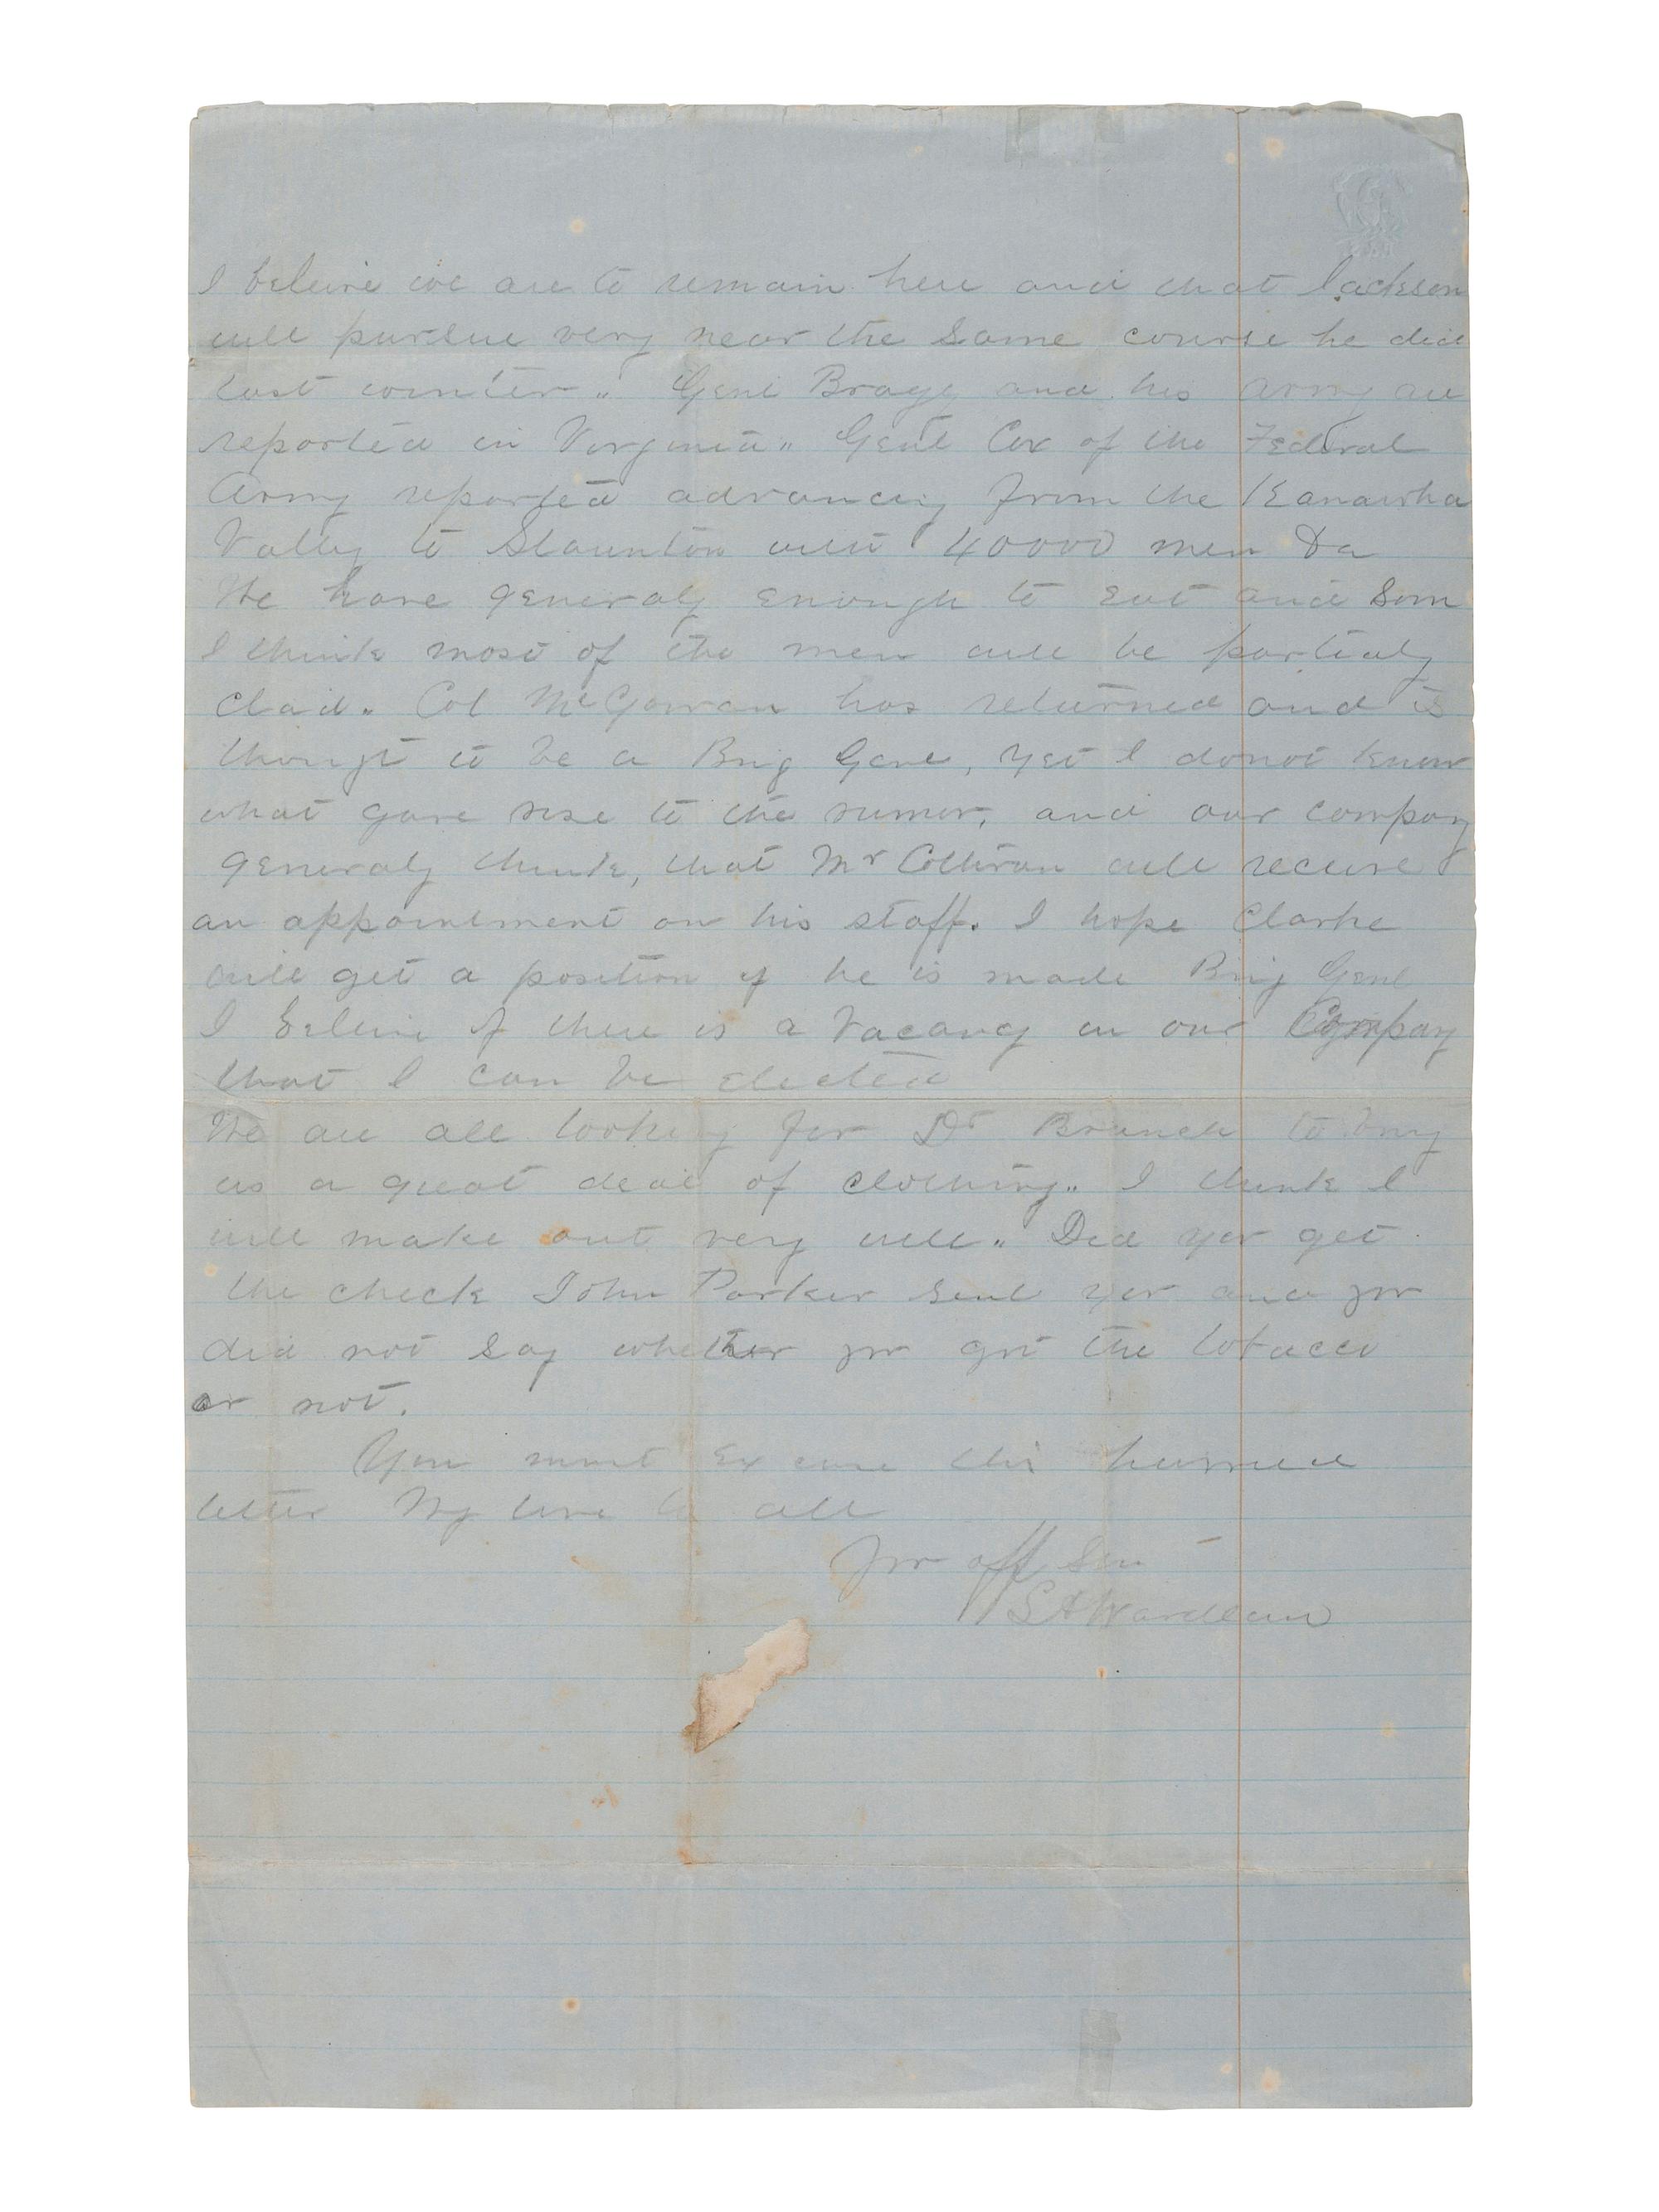 I beleive we are to remain here and that Jackson
will pursue very near the Same course he did
last winter" Genl Bragg and his army are
reported in Virginia" Genl Cox of the Federal
Army reported advancing from the Kanawha
Vally to Staunton with 40000 men
We have generaly enough to eat and Som
I think most of the men will be partialy
clad. Col McGowan has returned and is
thought to be a Brig Genl, yet I donot know
what gave rise to the rumor, and our company
generaly think, that Mr Cothran will receive
an appointment on his staff. I hope Clarke
will get a position if he is made Brig Genl
I beleive if there is a vacancy in our Company
that I can be elected
We are all looking for Dr Branch to bring
us a great deal of clothing" I think I
will make out very well" Did yor get
the check John Parker sent yor and yor
did not say whether yor got the tobacco
or not.
You must excuse this hurried
letter My love to all
Yor aff Son
SA Wardlaw